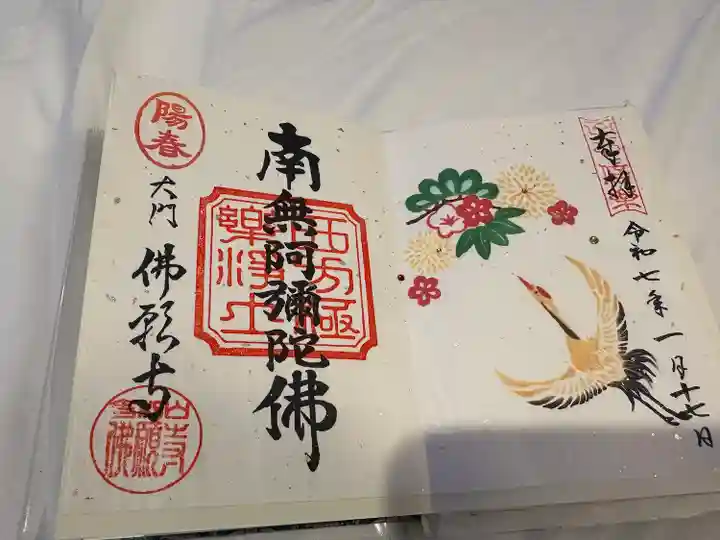 奉拝
令和七年一月十七日
南無阿彌陀佛
西方極
樂淨土
陽春
大門
佛願寺
佛願寺